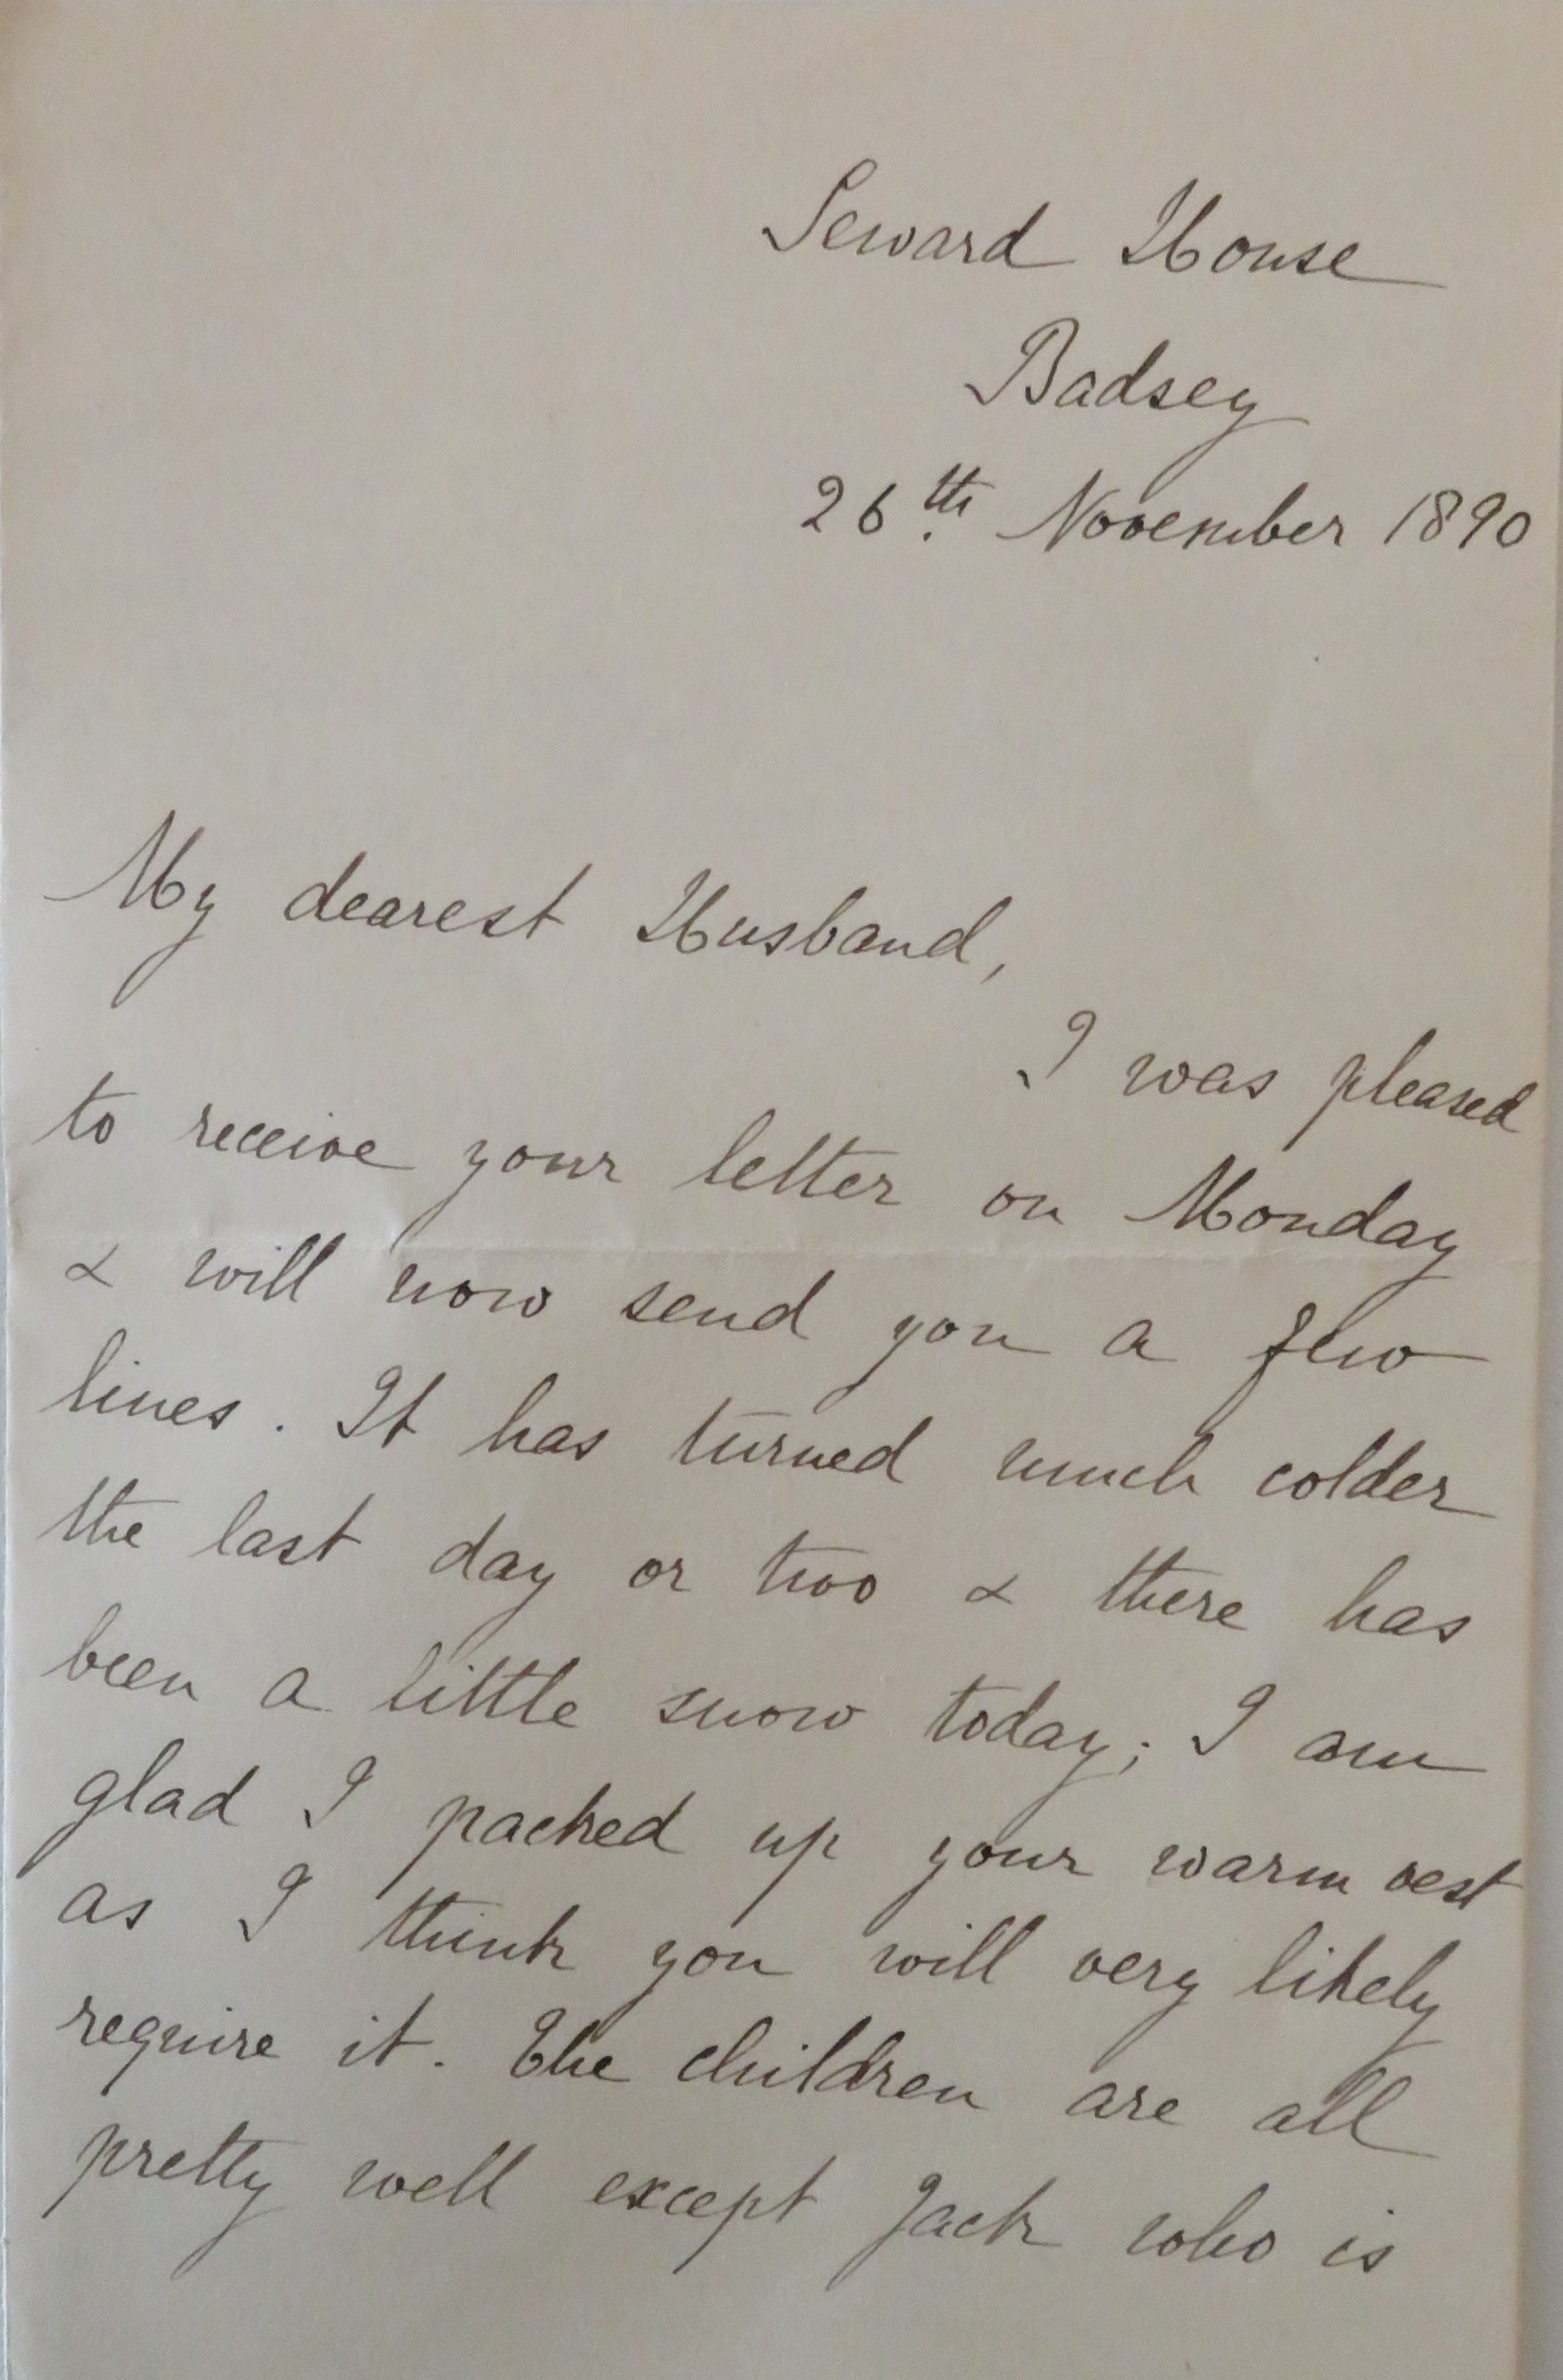 Seward House
Badsey
26th. November 1890
My dearest Husband,
I was pleased
to receive your letter on Monday
& will now send you a few
lines. It has turned much colder
the last day or two & there has
been a little snow today; I am
glad I packed up your warm vest
as I think you will very likely
require it. The children are all
pretty well except Jack who is